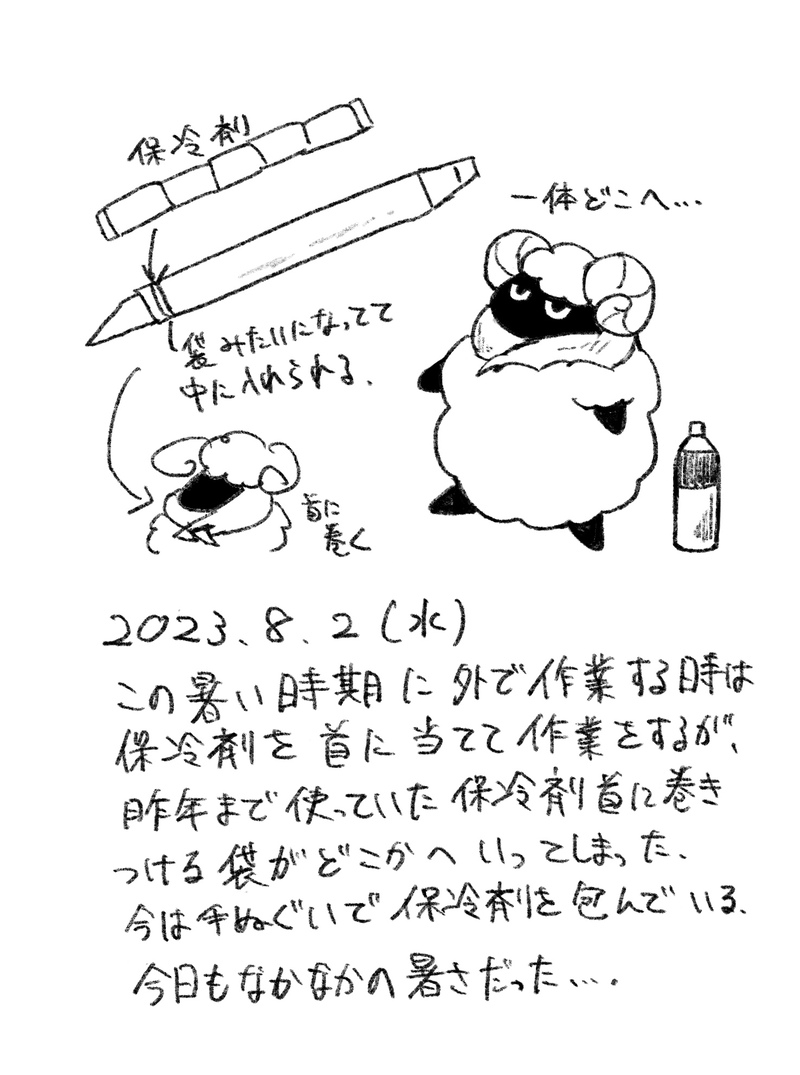 保冷剤
一体どこへ…
袋みたいになってて
中に入れられる.
首に
巻く
2023.8.2(水)
この暑い時期に外で作業する時は
保冷剤を首に当てて作業をするが、
昨年まで使っていた保冷剤首に巻き
つける袋がどこかへいってしまった.
今は手ぬぐいで保冷剤を包んでいる.
今日もなかなかの暑さだった….